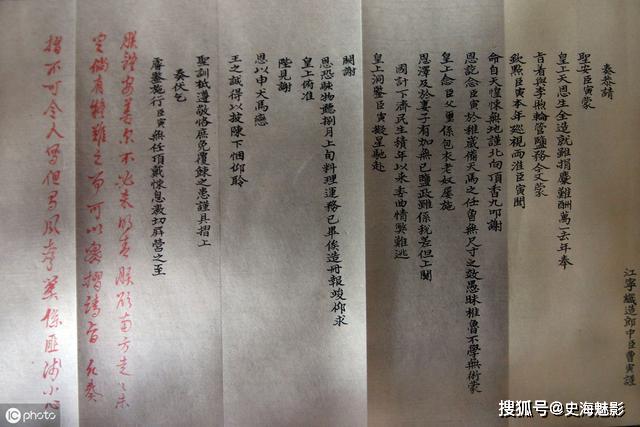 江寧織造郎中臣曹寅謹
奏恭請
聖安臣寅蒙
皇上天恩生全造就雖捐糜難酬萬一去年奉
旨着與李煦輪管鹽務今又蒙
欽點臣寅本年巡視兩淮臣寅聞
命自天惶悚無地謹北向頂香九叩謝
恩訖念臣寅於稚歲備犬馬之任曾無尺寸之效愚昧椎魯不學無術蒙
皇上念臣父璽係包衣老奴屢施
恩澤及於妻子有加無已鹽政雖係稅差但上關
國計下濟民生積年以來委曲情弊難逃
皇上洞鑒臣寅擬星馳赴
闕謝
恩恐駭物聽捌月上旬料理運務已畢俟造冊報竣仰求
皇上俯准
陛見謝
恩以申犬馬戀
王之誠得以披陳下悃仰聆
聖訓祗遵敬恪庶免覆餗之愆謹具摺上
奏伏乞
睿鑒施行臣寅無任頂戴悚息激切屏營之至
朕體安善尔不必來明春朕欲南方走走未
定倘有疑難之事可以密摺請旨凡奏
摺不可令人寫但有風聲關係匪淺小心
iC photo
搜狐号@史海魅影